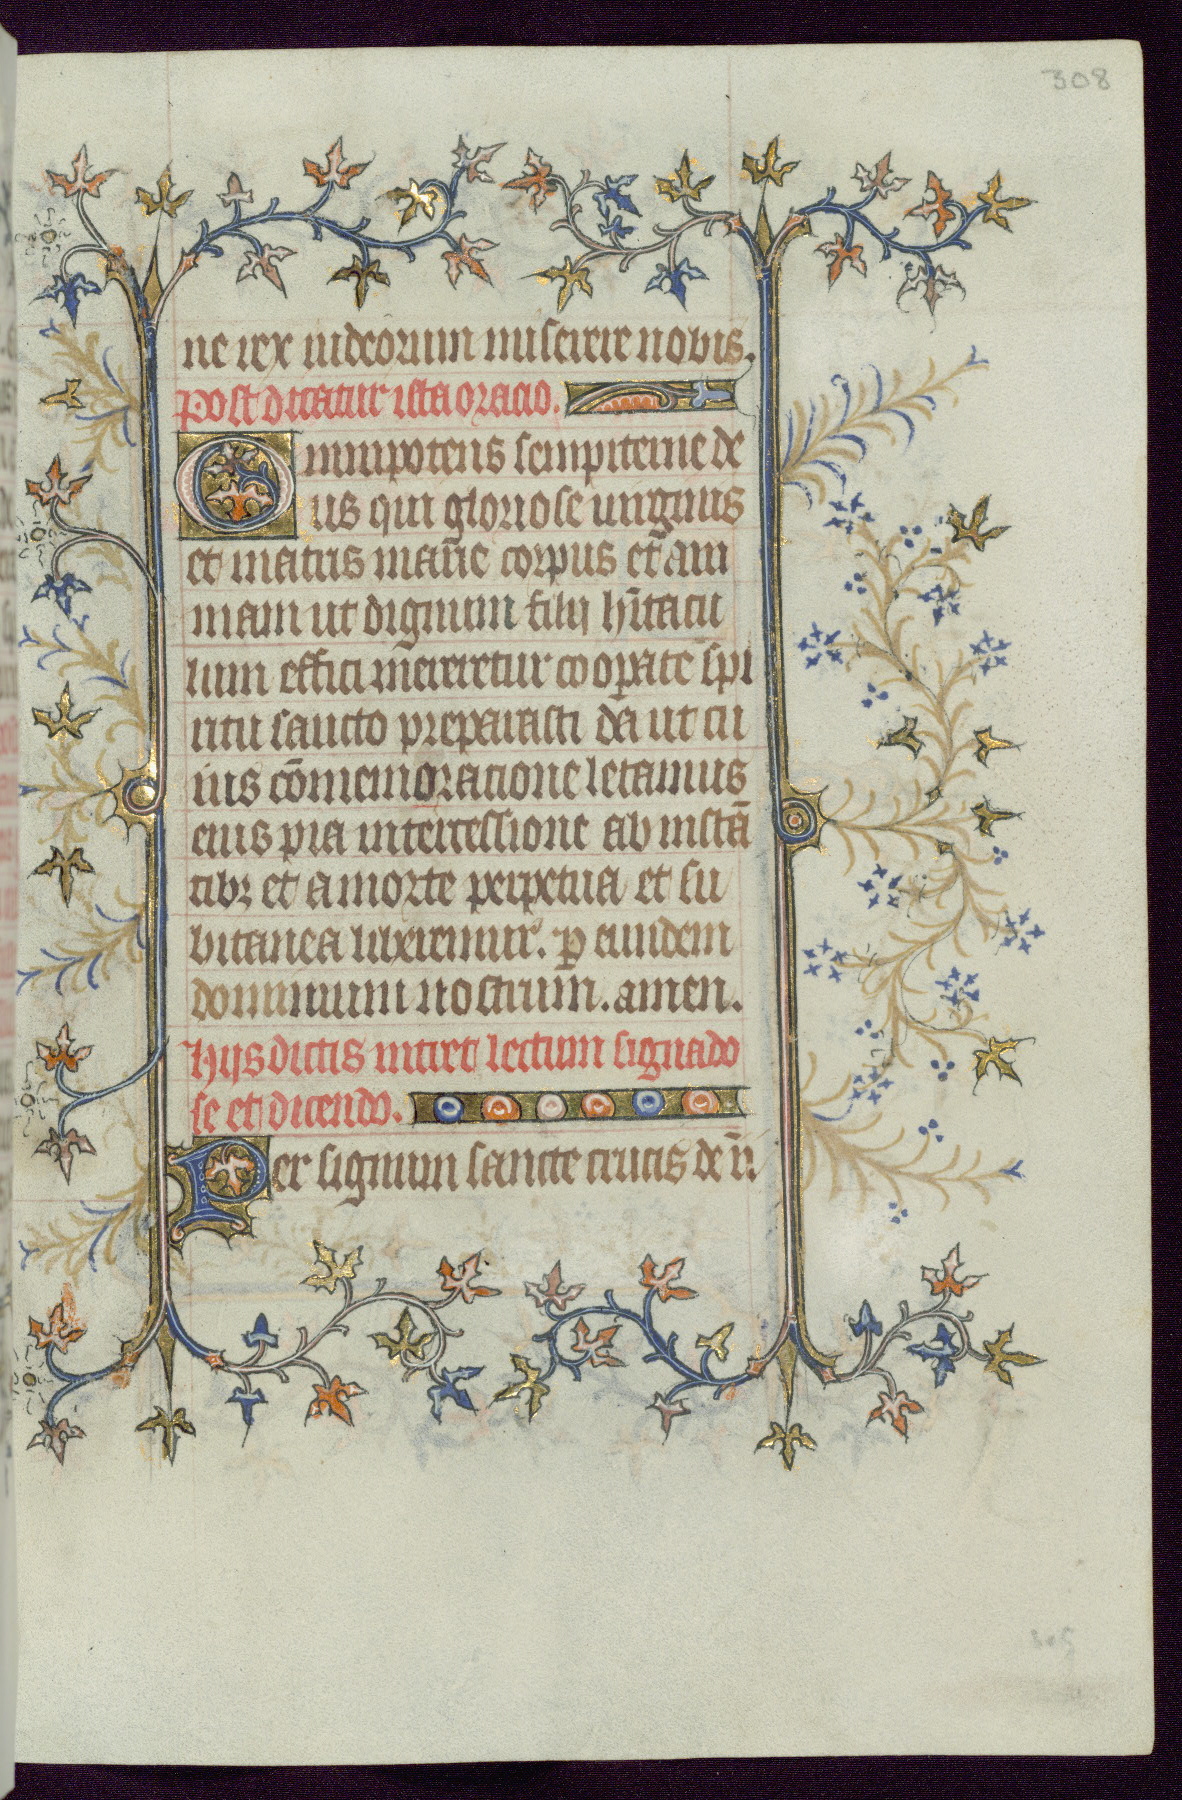 308
ne rex iudeorum miserere nobis.
Post dicatur ista oracio.
Omnipotens sempiterne de
us qui gloriose uirginis
et matris marie corpus et ani
mam ut dignum filii hitacu
lum effici mereretur cooperante spi
ritu sancto preparasti da ut cu
ius cōmemoratione letamus
eius pia intercessione ab instā
tibȝ et a morte perpetua et su
bitanea liberemur. p eundem
dominum nostrum. amen.
Hijs dictis intret lectum signado
se et dicendo.
Per signum sancte crucis de n̄.
305